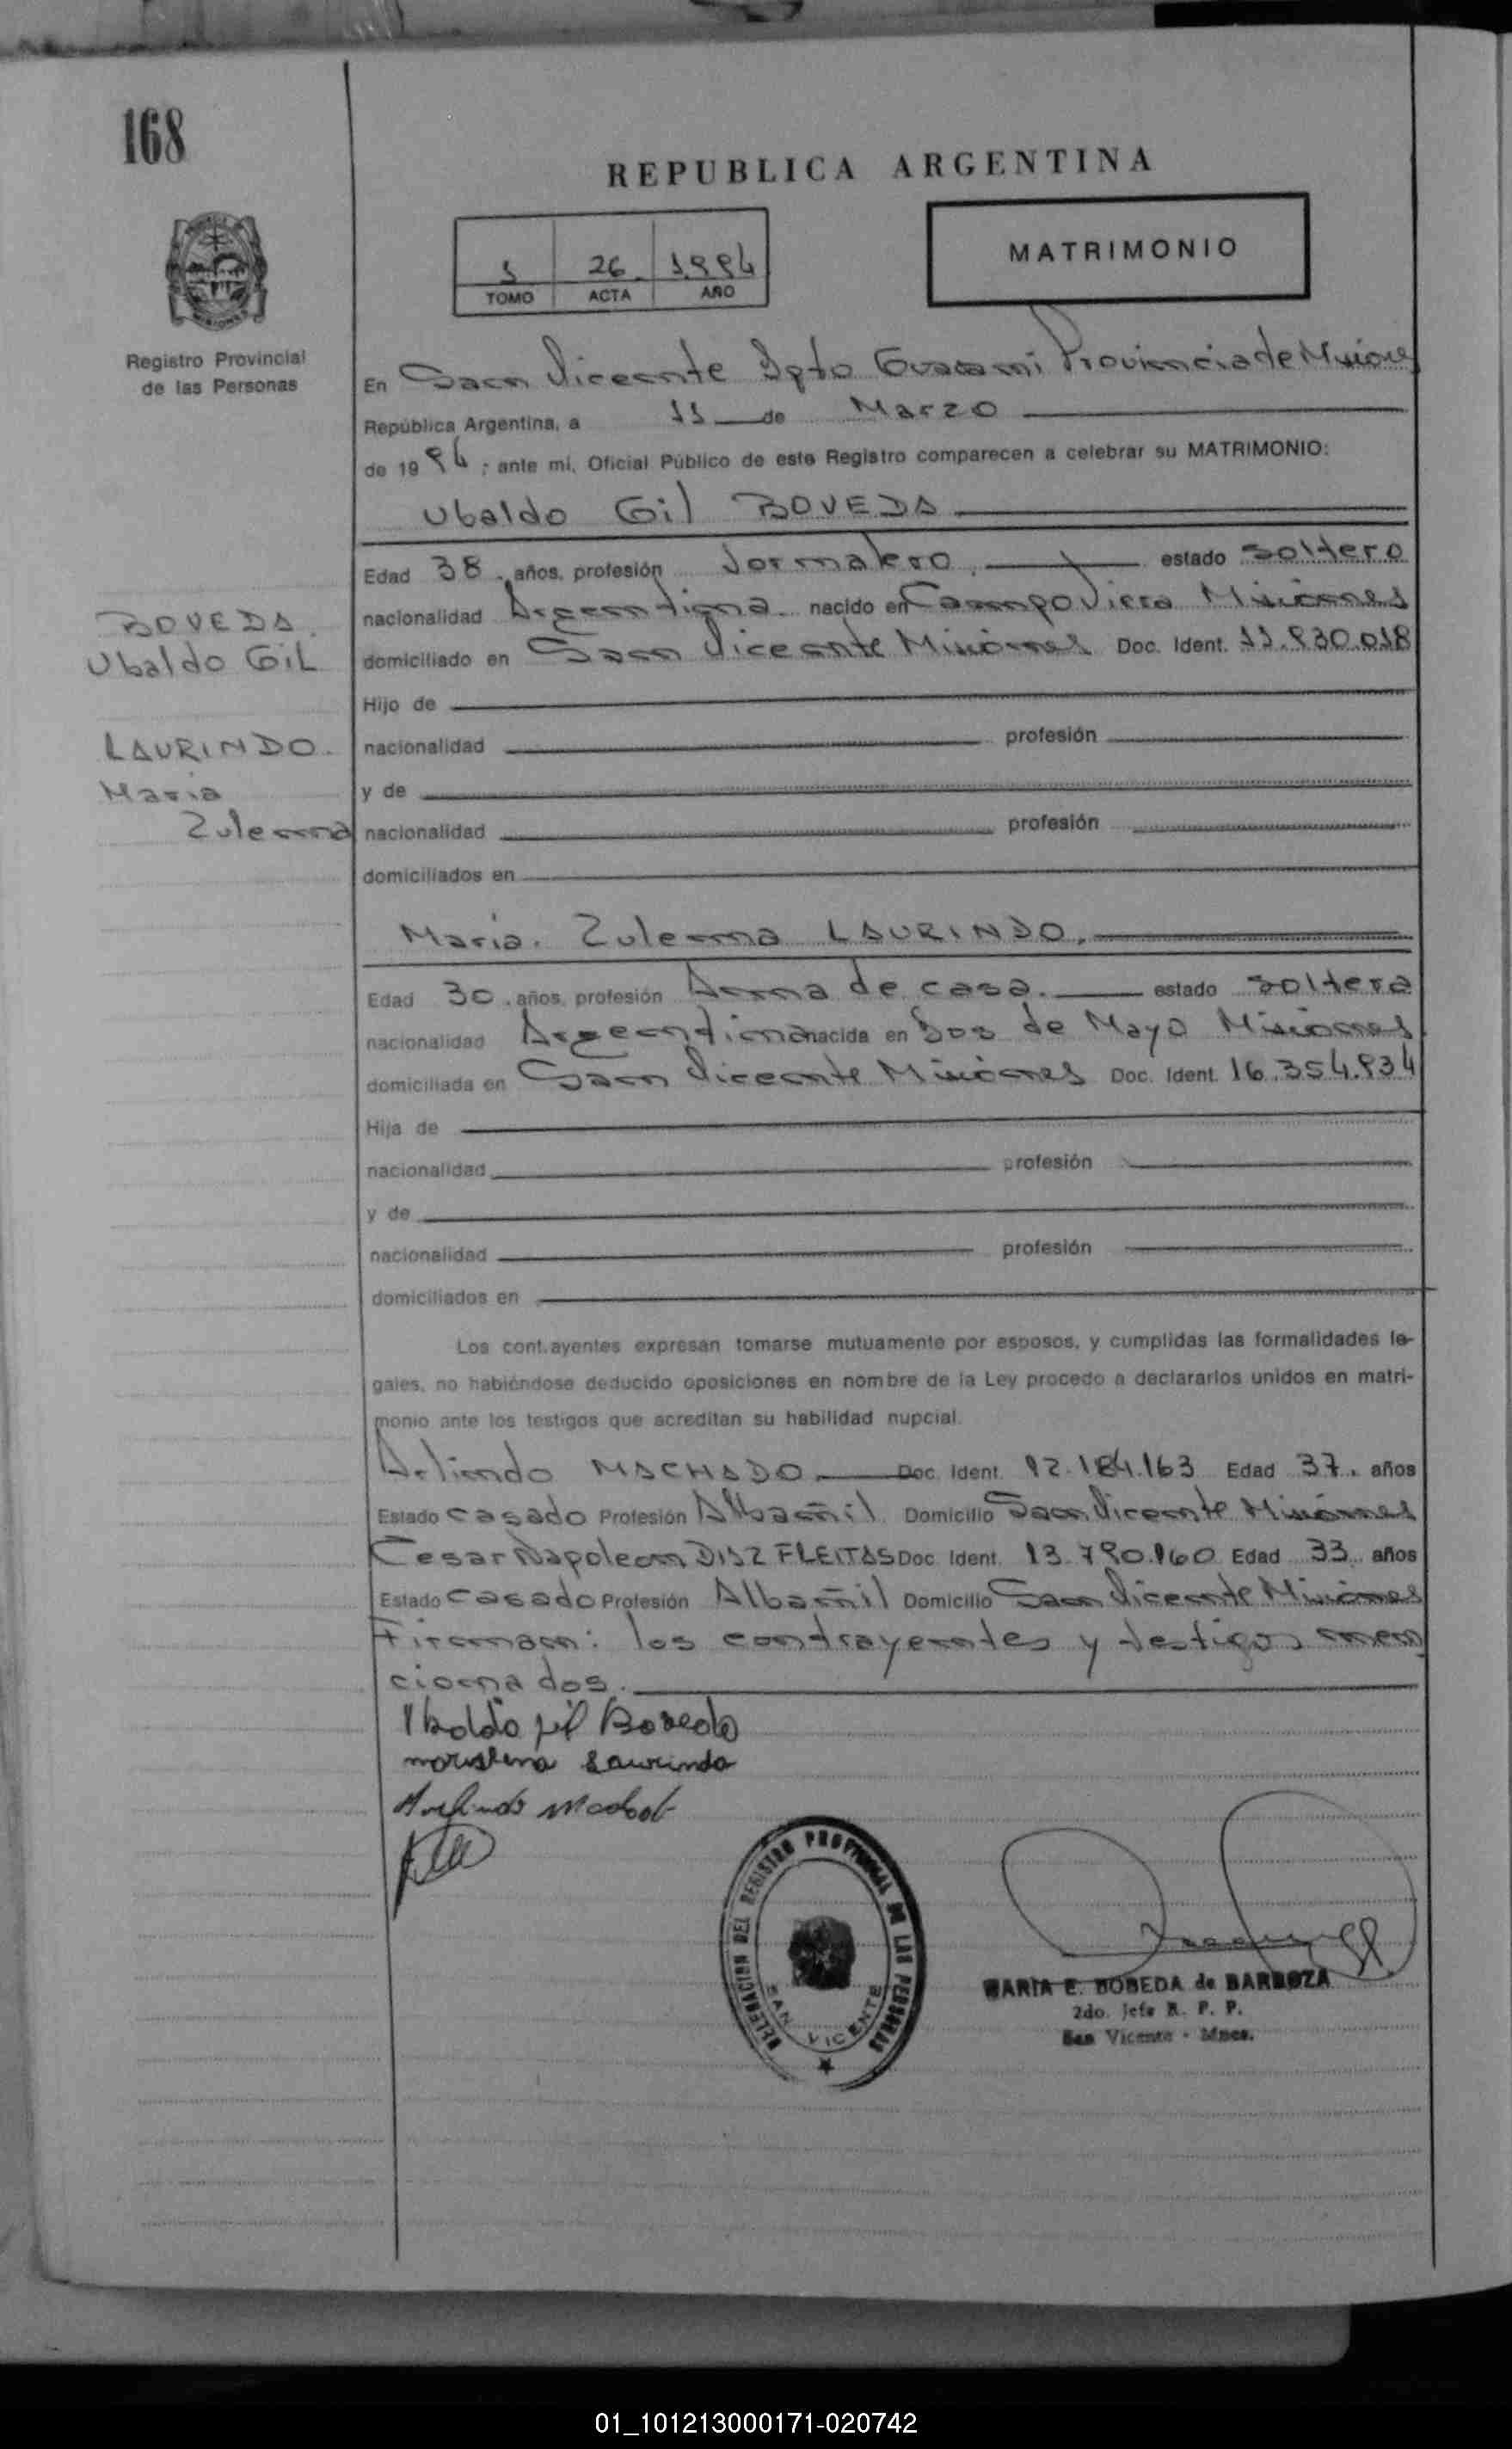 168
REPUBLICA ARGENTINA
1 26 1994
TOMO ACTA AÑO
MATRIMONIO
Registro Provincial
de las Personas
En San Vicente Dpto Guarani Provincia de Misiones
República Argentina, a 11 de Marzo
de 1994; ante mi, Oficial Público de este Registro comparecen a celebrar su MATRIMONIO:
Ubaldo Gil BOVEDA
Edad 38 años, profesión Jornalero estado soltero
nacionalidad Argentina nacido en Campo Viera Misiones
domiciliado en San Vicente Misiones Doc. Ident. 11.930.018
BOVEDA
Ubaldo GiL
Hijo de
LAURINDO
Maria
Zulema
nacionalidad profesión
y de
nacionalidad profesión
domiciliados en
Maria Zulema LAURINDO
Edad 30 años, profesión Ama de casa estado soltera
nacionalidad Argentina nacida en Dos de Mayo Misiones
domiciliada en San Vicente Misiones Doc. Ident. 16.354.934
Hija de
nacionalidad profesión
y de
nacionalidad profesión
domiciliados en
Los cont.ayentes expresan tomarse mutuamente por esposos, y cumplidas las formalidades le-
gales, no habiéndose deducido oposiciones en nombre de la Ley procedo a declararlos unidos en matri-
monio ante los testigos que acreditan su habilidad nupcial.
Arlindo MACHADO Doc. Ident. 92.184.163 Edad 37 años
Estado casado Profesión Albañil Domicilio San Vicente Misiones
Cesar Napoleon DIAZ FLEITAS Doc. Ident. 13.790.960 Edad 33 años
Estado casado Profesión Albañil Domicilio San Vicente Misiones
Firman: los contrayentes y testigos men
cionados.
Ubaldo gil Boveda
Laurindo
DELEGACION DEL REGISTRO PROVINCIAL DE LAS PERSONAS
SAN VICENTE
MARIA E. BOBEDA de BARBOZA
2do. Jefe R. P. P.
San Vicente - Mnes.
01_101213000171-020742